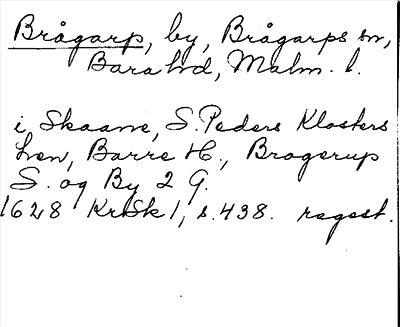 Brågarp, by, Brågarps sn,
Bara hd, Malm. l.
i Skaane, S. Peders Klosters
Len, Barre H., Bragerup
S. og By 2 G.
1628 KrSk 1, s. 438. regest.